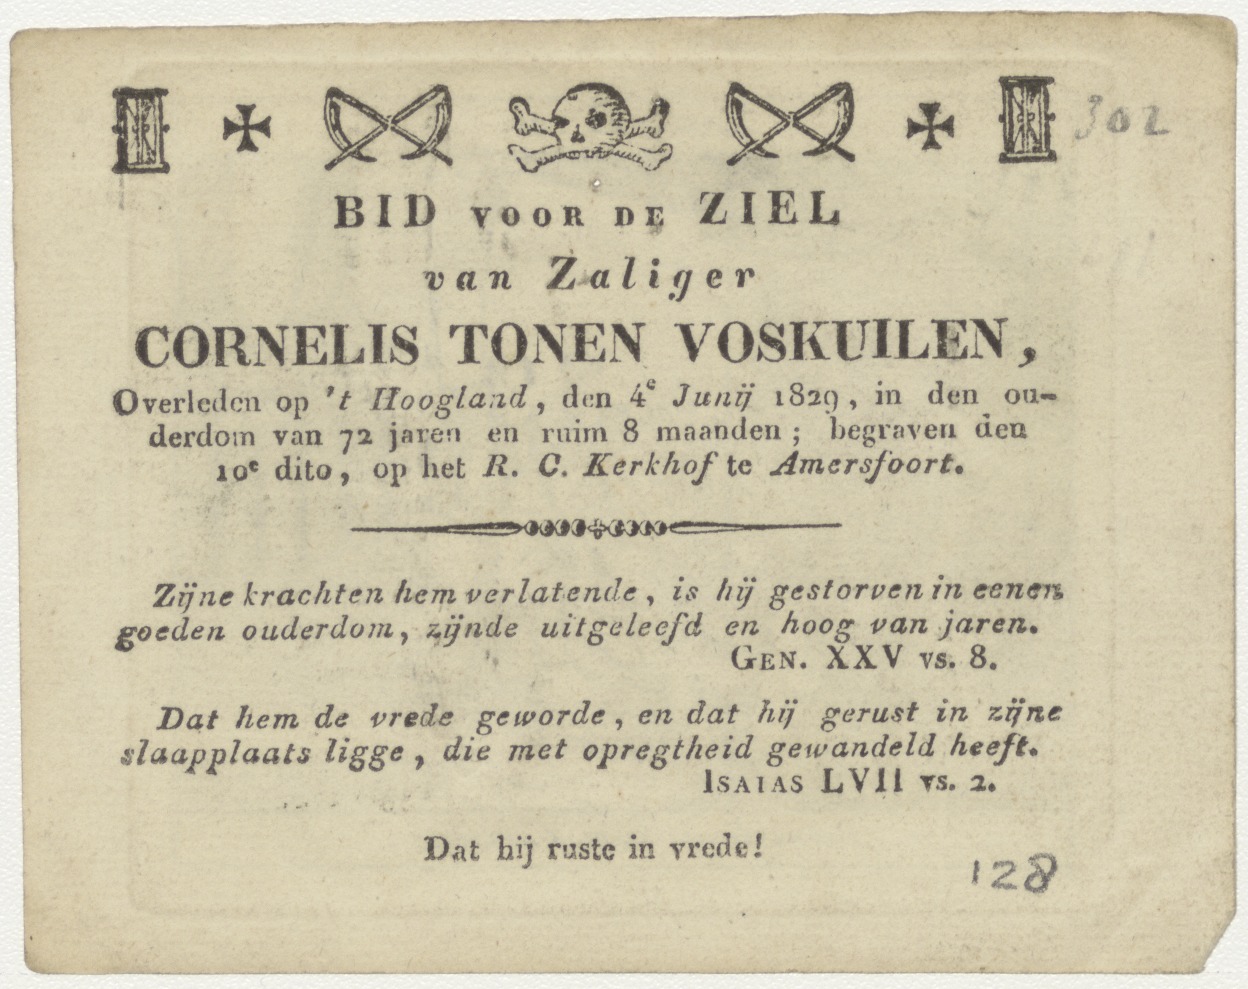 302
BID VOOR DE ZIEL
van Zaliger
CORNELIS TONEN VOSKUILEN,
Overleden op 't Hoogland, den 4e Junij 1829, in den ou-
derdom van 72 jaren en ruim 8 maanden; begraven den
10e dito, op het R. C. Kerkhof te Amersfoort.
Zijne krachten hem verlatende, is hij gestorven in eenen
goeden ouderdom, zijnde uitgeleefd en hoog van jaren.
GEN. XXV vs. 8.
Dat hem de vrede geworde, en dat hij gerust in zijne
slaapplaats ligge, die met opregtheid gewandeld heeft.
ISAIAS LVII vs. 2.
Dat hij ruste in vrede!
128